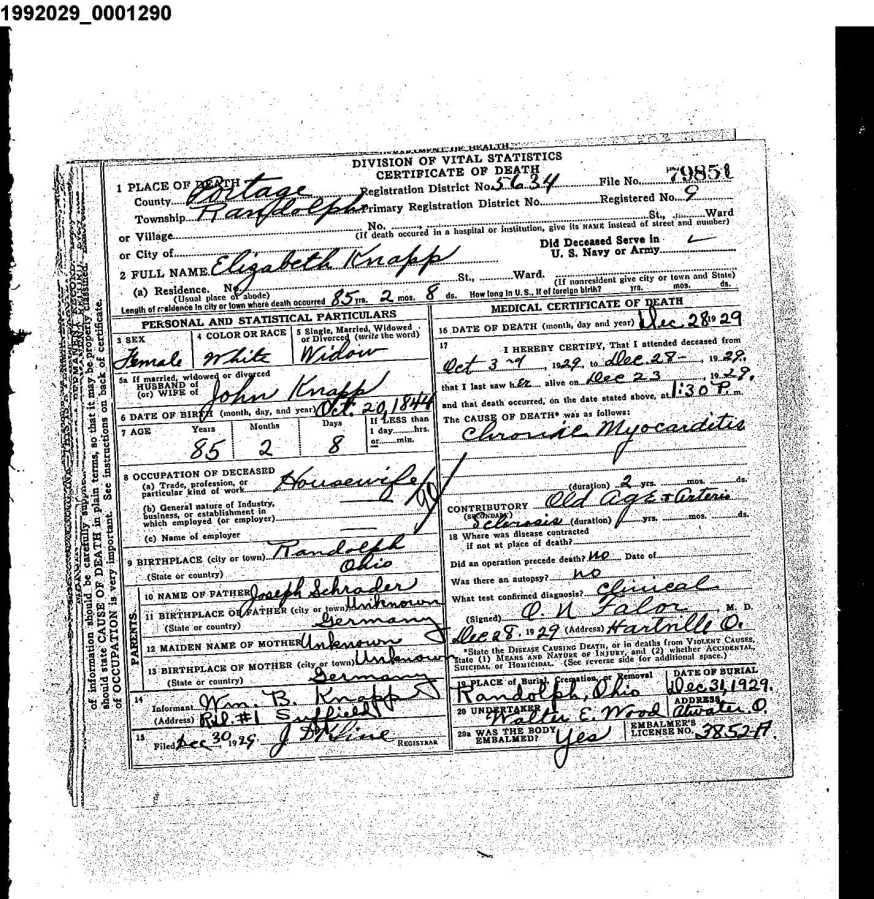 1992029_0001290
DIVISION OF VITAL STATISTICS
CERTIFICATE OF DEATH
1 PLACE OF DEATH
County Portage Registration District No. 5634 File No. 79851
Township Randolph Primary Registration District No. Registered No. 9
or Village No. St., Ward
(If death occured in a hospital or institution, give its NAME instead of street and number)
or City of
Did Deceased Serve in
U. S. Navy or Army
2 FULL NAME Elizabeth Knapp
(a) Residence. No. St., Ward.
(Usual place of abode) (If nonresident give city or town and State)
Length of residence in city or town where death occurred 85 yrs. 2 mos. 8 ds. How long in U. S., if of foreign birth? yrs. mos. ds.
PERSONAL AND STATISTICAL PARTICULARS
3 SEX 4 COLOR OR RACE 5 Single, Married, Widowed
or Divorced (write the word)
Female White Widow
5a If married, widowed or divorced
HUSBAND of
(or) WIFE of John Knapp
6 DATE OF BIRTH (month, day, and year) Oct. 20, 1844
7 AGE Years Months Days If LESS than
1 day hrs.
or min.
85 2 8
8 OCCUPATION OF DECEASED
(a) Trade, profession, or
particular kind of work Housewife
90
(b) General nature of Industry,
business, or establishment in
which employed (or employer)
(c) Name of employer
9 BIRTHPLACE (city or town) Randolph
(State or country) Ohio
PARENTS
10 NAME OF FATHER Joseph Schrader
11 BIRTHPLACE OF FATHER (city or town) Unknown
(State or country) Germany
12 MAIDEN NAME OF MOTHER Unknown
13 BIRTHPLACE OF MOTHER (city or town) Unknown
(State or country) Germany
14
Informant Wm. B. Knapp
(Address) R.d. #1 Suffield
15
Filed Dec 30 1929 J D Kline REGISTRAR
MEDICAL CERTIFICATE OF DEATH
16 DATE OF DEATH (month, day and year) Dec. 28 1929
17 I HEREBY CERTIFY, That I attended deceased from
Oct 3rd, 1929, to Dec. 28-, 1929,
that I last saw her alive on Dec 23, 1929,
and that death occurred, on the date stated above, at 1:30 P. m.
The CAUSE OF DEATH* was as follows:
Chronic Myocarditis
(duration) 2 yrs. mos. ds.
CONTRIBUTORY Old Age & Arterio
(SECONDARY)
Sclerosis (duration) yrs. mos. ds.
18 Where was disease contracted
if not at place of death?
Did an operation precede death? No Date of
Was there an autopsy? no
What test confirmed diagnosis? Clinical
(Signed) O. N Falor, M. D.
Dec 28, 1929 (Address) Hartville O.
*State the DISEASE CAUSING DEATH, or in deaths from VIOLENT CAUSES,
state (1) MEANS AND NATURE OF INJURY, and (2) whether ACCIDENTAL,
SUICIDAL or HOMICIDAL. (See reverse side for additional space.)
19 PLACE of Burial, Cremation, or Removal DATE OF BURIAL
Randolph, Ohio Dec. 31, 1929.
20 UNDERTAKER ADDRESS
Walter E. Wood Atwater O.
20a WAS THE BODY
EMBALMED? Yes
EMBALMER'S
LICENSE NO. 3852-A.
of information should be carefully
should state CAUSE OF DEATH in plain terms, so that it may be properly classified.
of OCCUPATION is very important. See instructions on back of certificate.